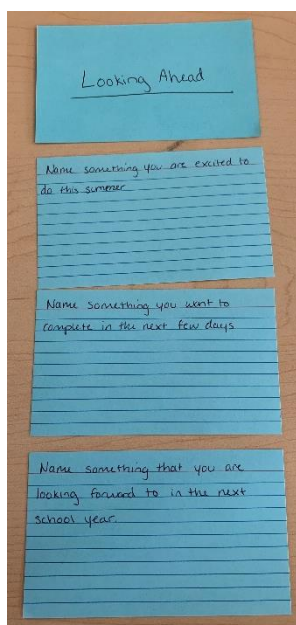 Looking Ahead
Name something you are excited to
do this summer
Name something you want to
complete in the next few days
Name something that you are
looking forward to in the next
school year.